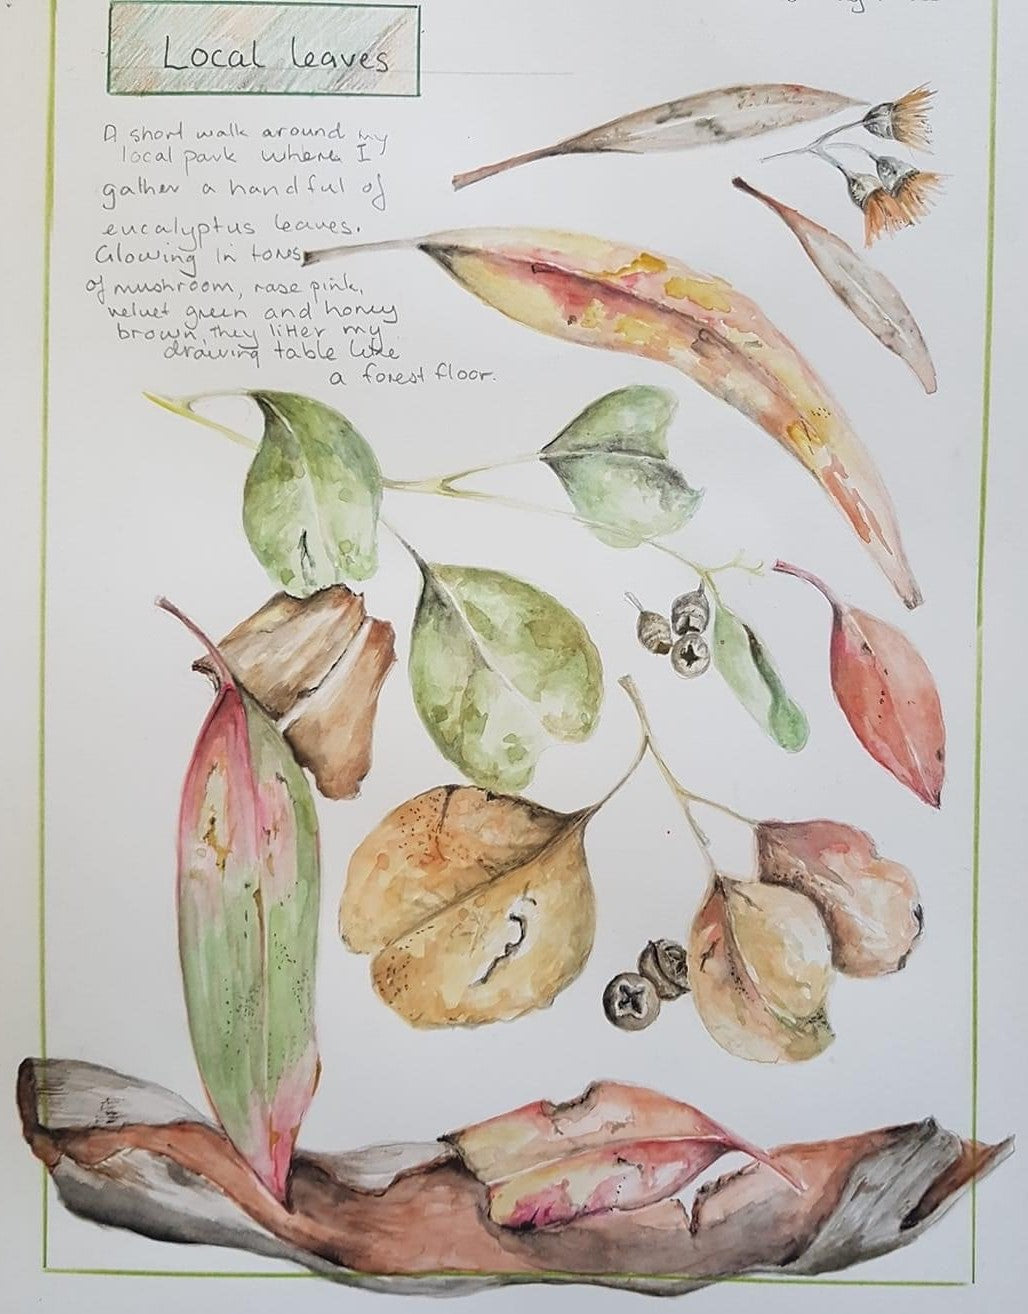 Local leaves
A short walk around my
local park where I
gather a handful of
eucalyptus leaves.
Glowing in tones
of mushroom, rose pink,
velvet green and honey
brown, they litter my
drawing table like
a forest floor.